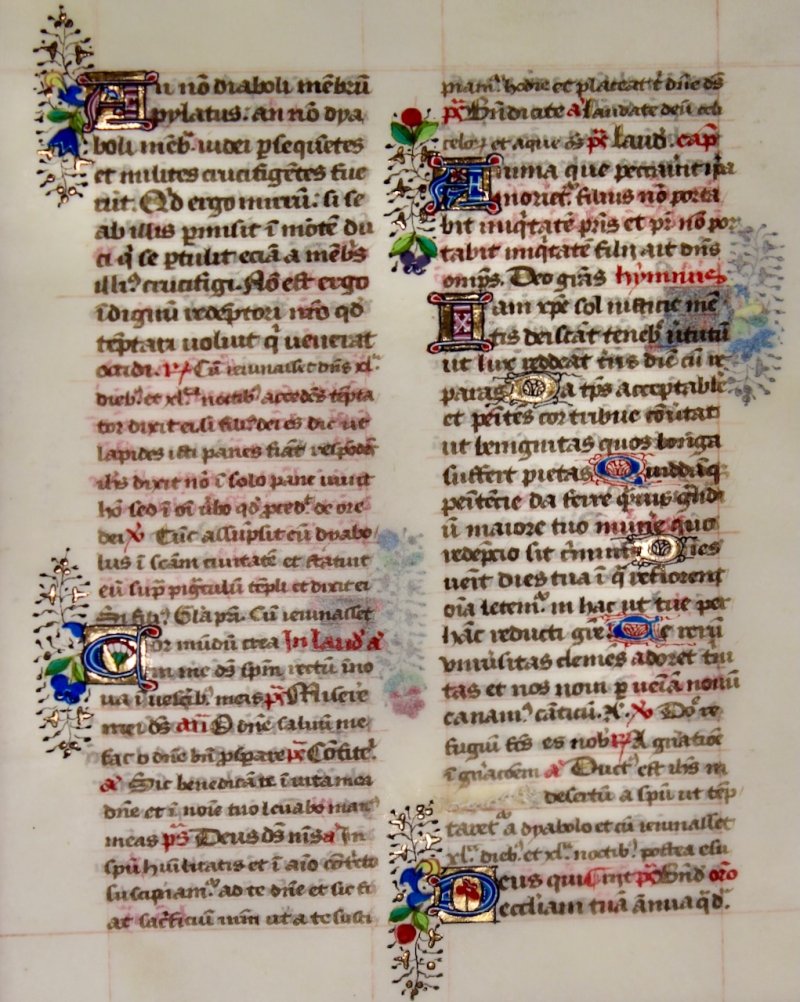 An nō diaboli mēbrū
pylatus. an nō dya
boli mēb' iudei p̄seqūetes
et milites crucifigētes fue
rūt. Qd ergo mirū. si se
ab illis p̄misit ī mōtē du
ci q̄ se p̄tulit eciā a mēbs
illi' crucifigi. Nō est ergo
īdignū redēptori nr̄o qd
tēptari voluit q' venerat
occidi. R Cū ieiunasset dn̄s xl.
dieb' et xl. noctib' accedēs tēpta
tor dixit ei si fili' dei es dic ut
lapides isti panes fiāt respōdēs
ihs dixit nō ī solo pane vivit
hō sed ī oī v̄bo qd p̄ced' de ore
dei V Tūc assūpsit eū dyabo
lus ī scām civitatē et statuit
eū sup̄ pignculū tēpli et dixit ei
Si fili' Gla pa. Cū ieiunasset
Cor mūdū crea In laud' a'
in me ds spm̄ rectū īno
va ī viscib' meis ps Misere
mei ds an O dn̄e salvū me
fac o dn̄e bn̄ p̄sperare ps Cōfite'
a' Sic benedicā te ī vita mea
dn̄e et ī noīe tuo levabo man'
meas ps Deus ds m's a' In
spū hūilitatis et ī aīo cōtrito
suscipiam' ad te dn̄e et sic fi
at sac'ficiū nr̄m ut a te susci
piam' hodie et placeat t' dn̄e ds
ps Bn̄dicite a' laudate deū celi
celor' et aque oēs ps laud. cap
Anima que peccav'it ip̄a
moriet' filius nō porta
bit iniq'tatē pr̄is et pr̄ nō por
tabit iniq'tatē filii ait dn̄s
omp̄s. Deo grās hymnus
Iam xpe sol iusticie mē
tis deiscāt teneb' v'tutū
ut lux reddeat t'ris diē cū re
paras Da tp̄s acceptabile
et pēitēs cor tribue cōv'tat
ut benignitas quos lon'ga
suffert pietas Quiddāq
penitēcie da ferre q̄vius g'ndi
ū maiore tuo mun'e quo
redēpcio sit c'minū Dies
venit dies tua ī q̄ reflorent
oīa letem' in hac ut tue per
hāc reducti gr̄e Te rerū
univ'sitas clemēs adoret t'ni
tas et nos novi p̄ veīā novū
canam' cāticū. A. V Dn̄e re
fugiū fc̄s es nob' R A gn̄atiōe
ī gn̄atōem a' Duct' est ihs in
desertū a spū ut tēp
taret' a dyabolo et cū ieiunasset
xl. dieb' et xl. noctib' postea esu
Deus qui ps Bn̄d oro
ecc'liam tuā ānua q'd'